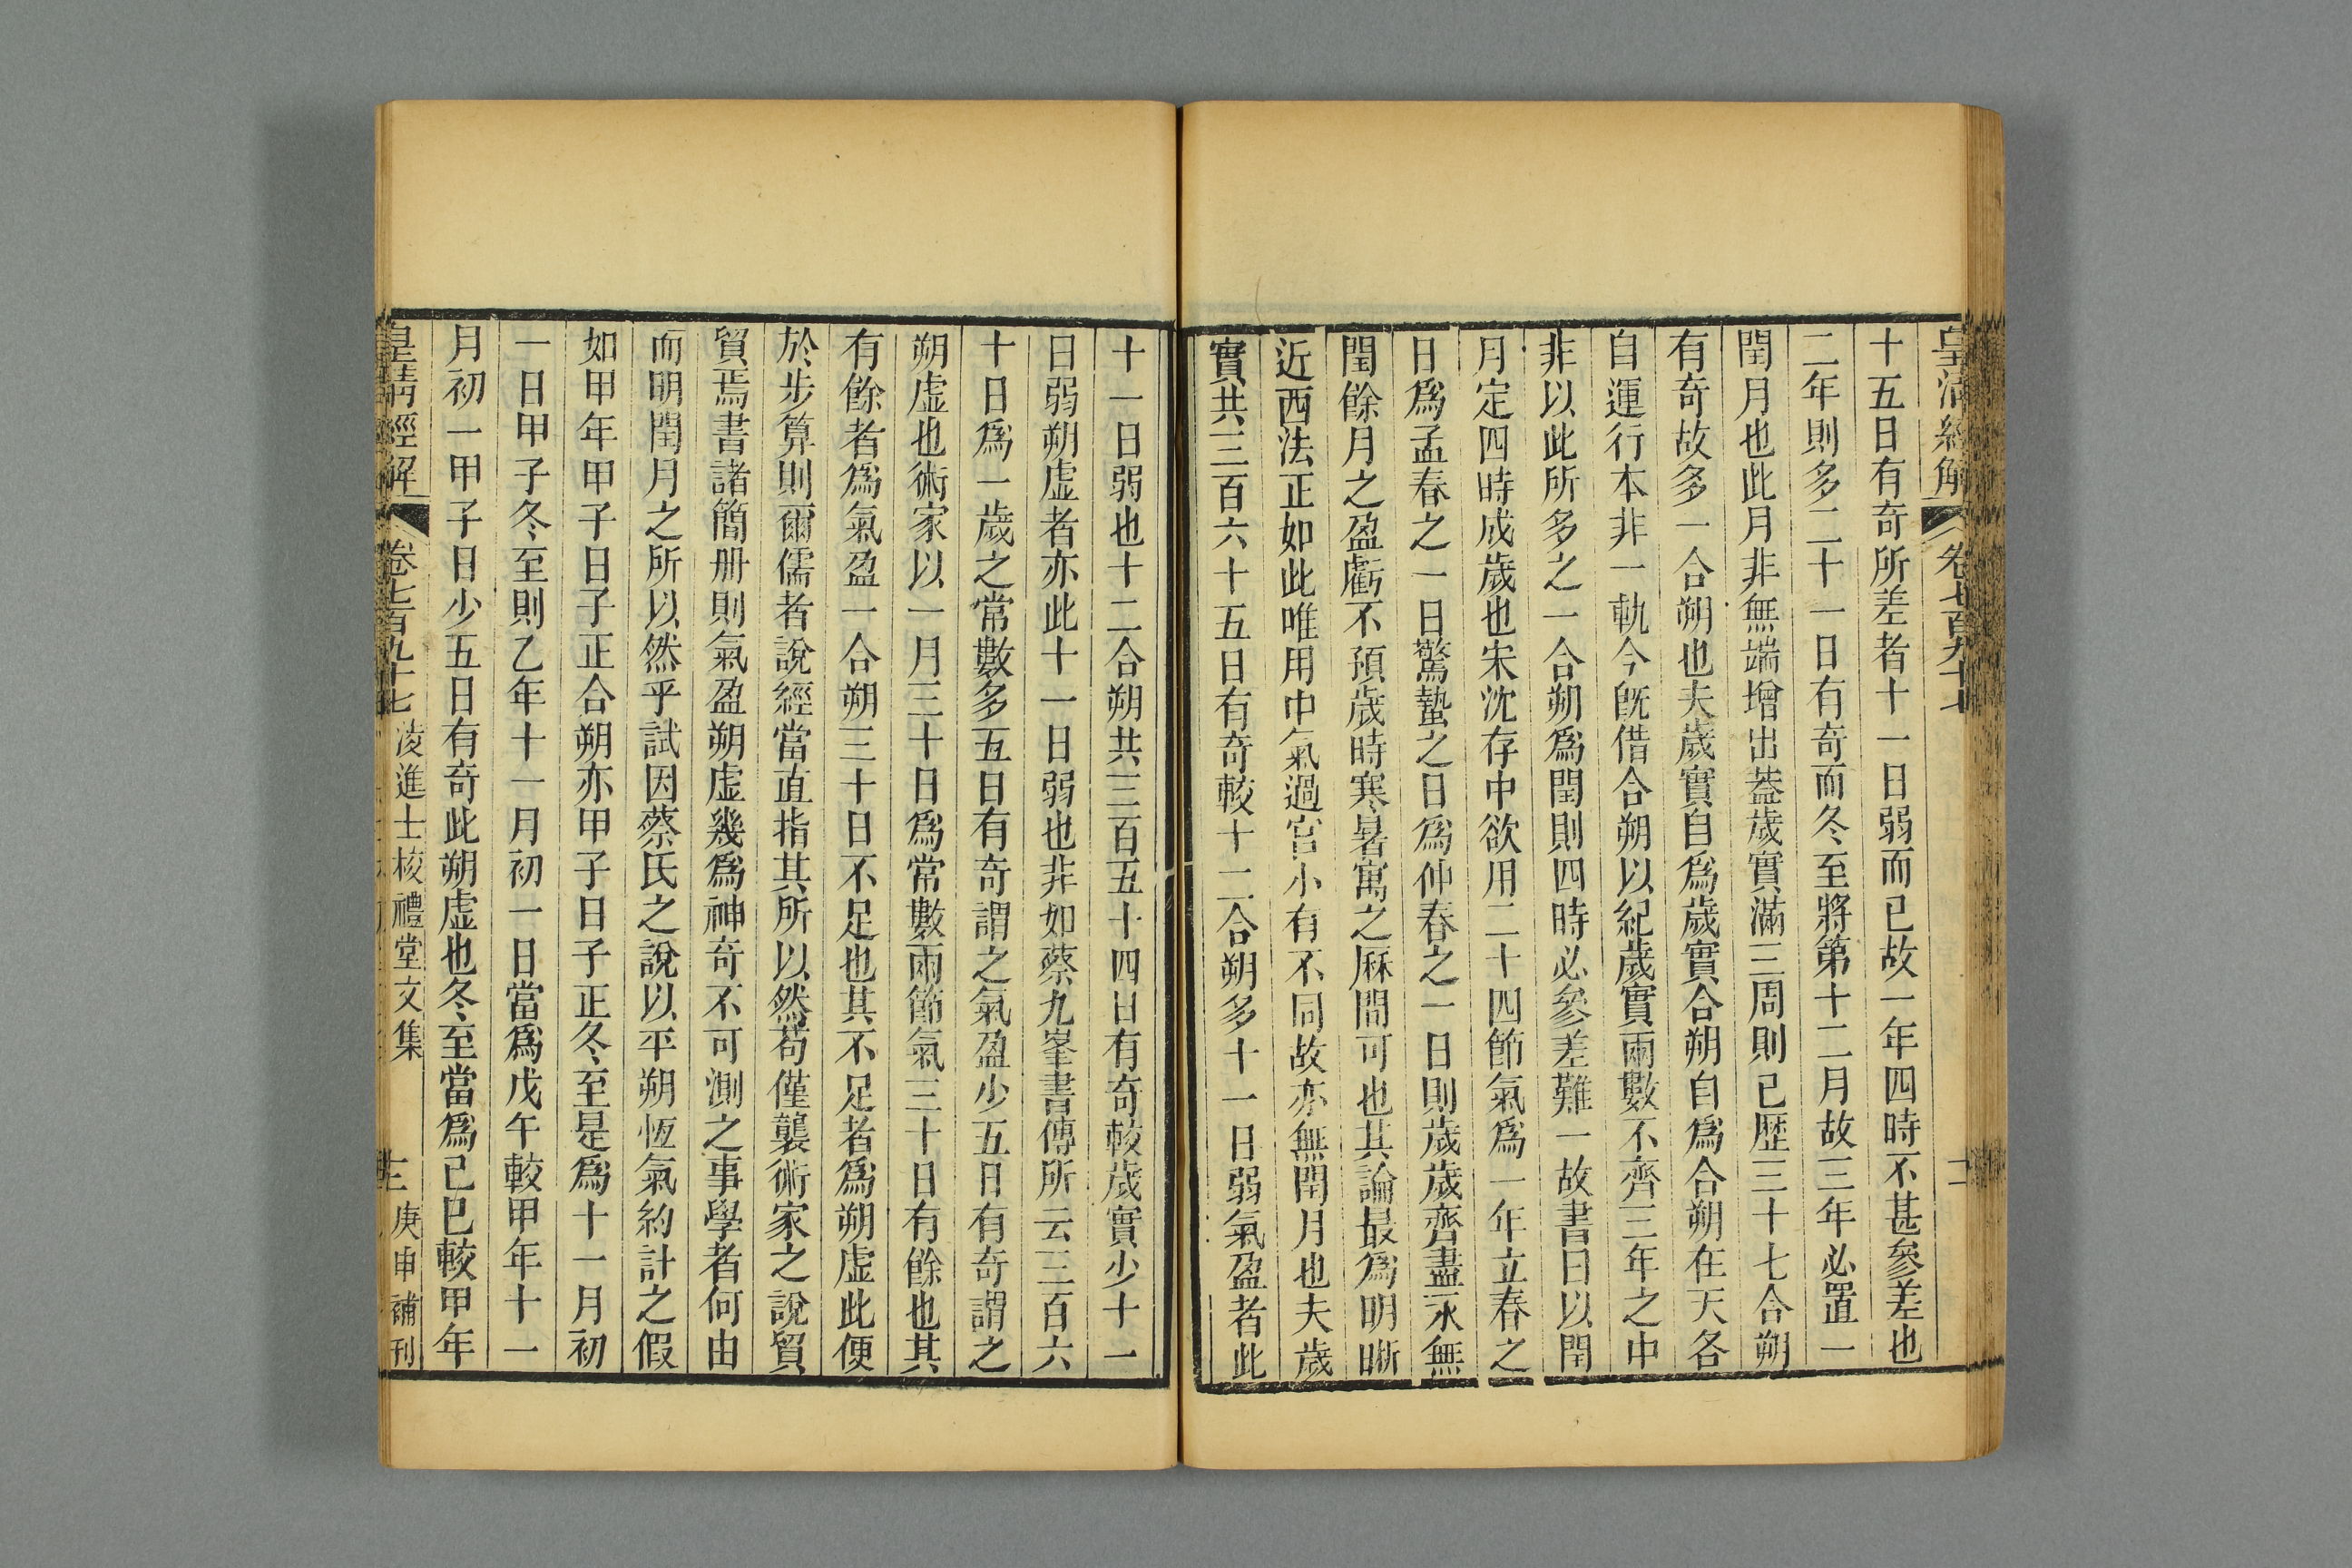 皇清經解 卷七百九十七 二
十五日有奇所差者十一日弱而已故一年四時不甚參差也
二年則多二十一日有奇而冬至將第十二月故三年必置一
閏月也此月非無端增出葢歲實滿三周則已歷三十七合朔
有奇故多一合朔也夫歲實自爲歲實合朔自爲合朔在天各
自運行本非一軌今旣借合朔以紀歲實兩數不齊三年之中
非以此所多之一合朔爲閏則四時必參差難一故書曰以閏
月定四時成歲也宋沈存中欲用二十四節氣爲一年立春之
日爲孟春之一日驚蟄之日爲仲春之一日則歲歲齊盡永無
閏餘月之盈虧不預歲時寒暑寓之厤間可也其論最爲明晰
近西法正如此唯用中氣過宮小有不同故亦無閏月也夫歲
實共三百六十五日有奇較十二合朔多十一日弱氣盈者此
十一日弱也十二合朔共三百五十四日有奇較歲實少十一
日弱朔虛者亦此十一日弱也非如蔡九峯書傳所云三百六
十日爲一歲之常數多五日有奇謂之氣盈少五日有奇謂之
朔虛也術家以一月三十日爲常數兩節氣三十日有餘也其
有餘者爲氣盈一合朔三十日不足也其不足者爲朔虛此便
於步算則爾儒者說經當直指其所以然苟僅襲術家之說貿
貿焉書諸簡册則氣盈朔虛幾爲神奇不可測之事學者何由
而明閏月之所以然乎試因蔡氏之說以平朔恆氣約計之假
如甲年甲子日子正合朔亦甲子日子正冬至是爲十一月初
一日甲子冬至則乙年十一月初一日當爲戊午較甲年十一
月初一甲子日少五日有奇此朔虛也冬至當爲己巳較甲年
皇清經解 卷七百九十七 淩進士校禮堂文集 三 庚申補刊